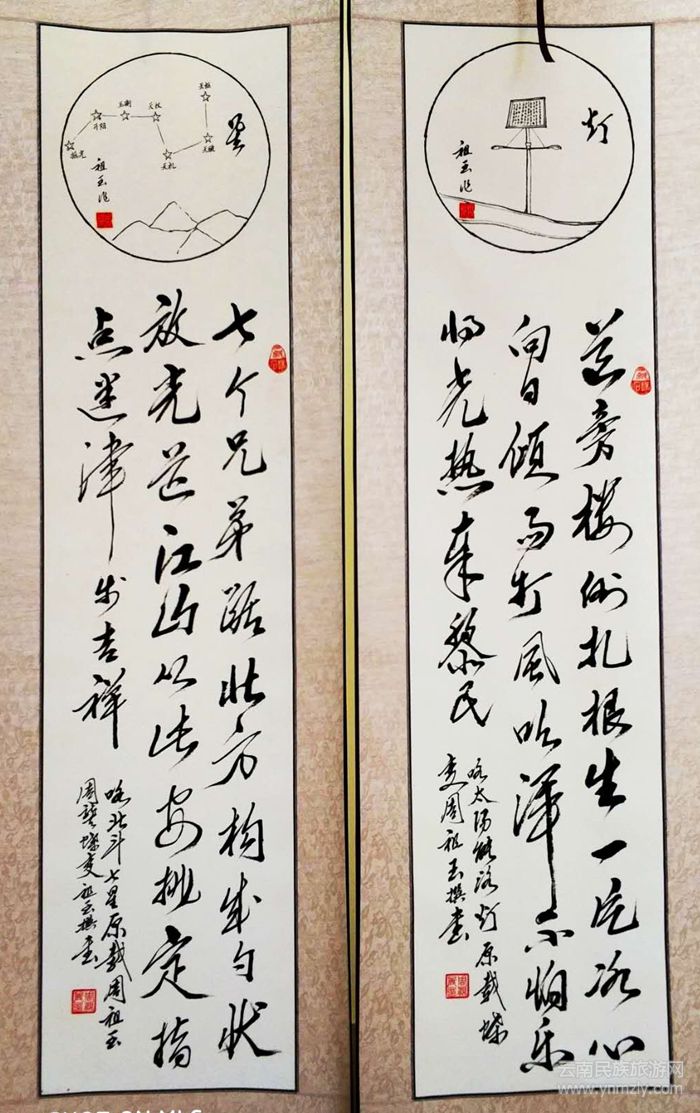 灯
祖玉作
道旁楼侧扎根生一片冰心
向日倾雨打风吹浑不怕乐
将光热奉黎民
咏太阳能路灯原载蝶
变周祖玉撰书
星
天枢
天璇
天机
天权
玉衡
开阳
摇光
祖玉作
七个兄弟踞北方构成勺状
放光芒江山从此安排定指
点迷津步吉祥
咏北斗七星原载周祖玉
周蝶变祖玉撰书
云南民族旅游网
www.ynmzly.com